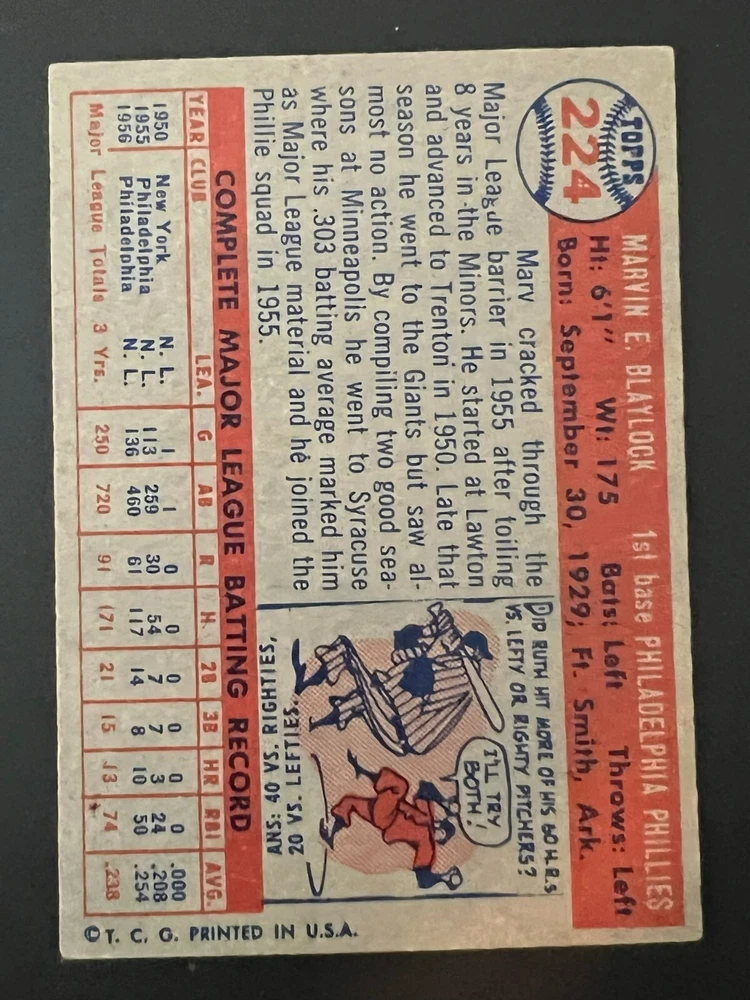 TOPPS
224
MARVIN E. BLAYLOCK 1st base PHILADELPHIA PHILLIES
Ht: 6'1" Wt: 175 Bats: Left Throws: Left
Born: September 30, 1929; Ft. Smith, Ark.
Marv cracked through the
Major League barrier in 1955 after toiling
8 years in the Minors. He started at Lawton
and advanced to Trenton in 1950. Late that
season he went to the Giants but saw al-
most no action. By compiling two good sea-
sons at Minneapolis he went to Syracuse
where his .303 batting average marked him
as Major League material and he joined the
Phillie squad in 1955.
DID RUTH HIT MORE OF HIS 60 H.R.S
VS. LEFTY OR RIGHTY PITCHERS?
I'LL TRY
BOTH!
ANS: 40 VS. RIGHTIES,
20 VS. LEFTIES.
COMPLETE MAJOR LEAGUE BATTING RECORD
YEAR CLUB LEA. G AB R H. 2B 3B HR RBI AVG.
1950 New York N. L. 1 1 0 0 0 0 0 0 .000
1955 Philadelphia N. L. 113 259 30 54 7 7 3 24 .208
1956 Philadelphia N. L. 136 460 61 117 14 8 10 50 .254
Major League Totals 3 Yrs. 250 720 91 171 21 15 13 74 .238
© T. C. G. PRINTED IN U.S.A.